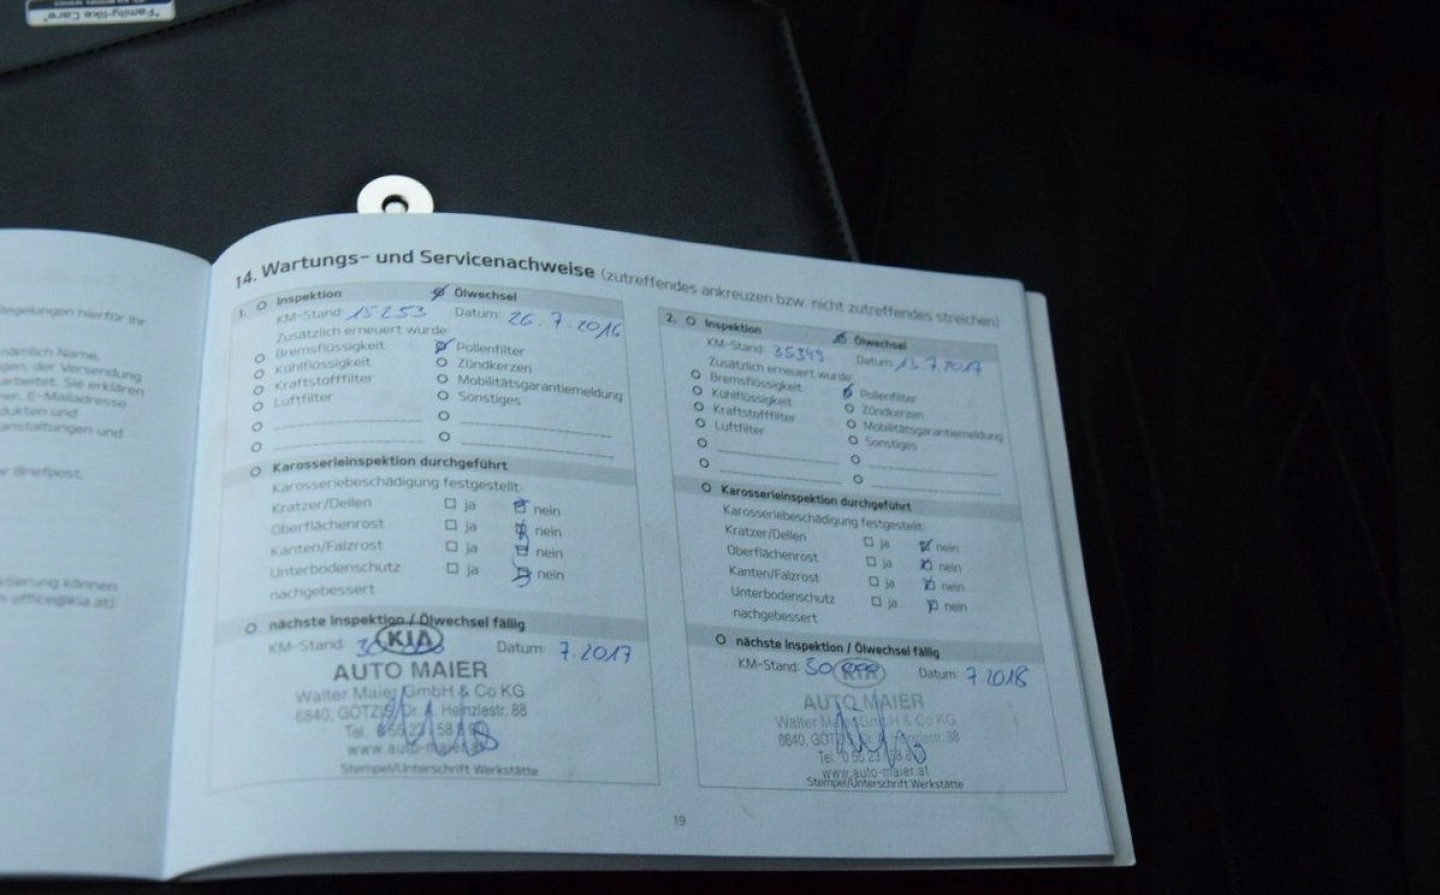 "Family-like Care"
egelungen hierfür Ihr
nämlich Name,
gen, der Versendung
arbeitet. Sie erklären
ner, E-Mailadresse
dukten und
anstaltungen und
er Briefpost.
tierung können
n office@kia.at)
14. Wartungs- und Servicenachweise (zutreffendes ankreuzen bzw. nicht zutreffendes streichen)
1. Inspektion Ölwechsel
KM-Stand: 15253 Datum: 26.7.2016
Zusätzlich erneuert wurde:
Bremsflüssigkeit Pollenfilter
Kühlflüssigkeit Zündkerzen
Kraftstofffilter Mobilitätsgarantiemeldung
Luftfilter Sonstiges
Karosserieinspektion durchgeführt
Karosseriebeschädigung festgestellt:
Kratzer/Dellen ja nein
Oberflächenrost ja nein
Kanten/Falzrost ja nein
Unterbodenschutz ja nein
nachgebessert
nächste Inspektion / Ölwechsel fällig
KM-Stand: KIA Datum: 7.2017
AUTO MAIER
Walter Maier GmbH & Co KG
6840, GÖTZIS, Dr. A. Heinzlestr. 88
Tel.
www.auto-maier.at
Stempel/Unterschrift Werkstätte
2. Inspektion Ölwechsel
KM-Stand: 35349 Datum: 13.7.2017
Zusätzlich erneuert wurde:
Bremsflüssigkeit Pollenfilter
Kühlflüssigkeit Zündkerzen
Kraftstofffilter Mobilitätsgarantiemeldung
Luftfilter Sonstiges
Karosserieinspektion durchgeführt
Karosseriebeschädigung festgestellt:
Kratzer/Dellen ja nein
Oberflächenrost ja nein
Kanten/Falzrost ja nein
Unterbodenschutz ja nein
nachgebessert
nächste Inspektion / Ölwechsel fällig
KM-Stand: KIA Datum: 7.2018
AUTO MAIER
Walter Maier GmbH & Co KG
6840, GÖTZIS, Dr. A. Heinzlestr. 88
Tel.
www.auto-maier.at
Stempel/Unterschrift Werkstätte
19